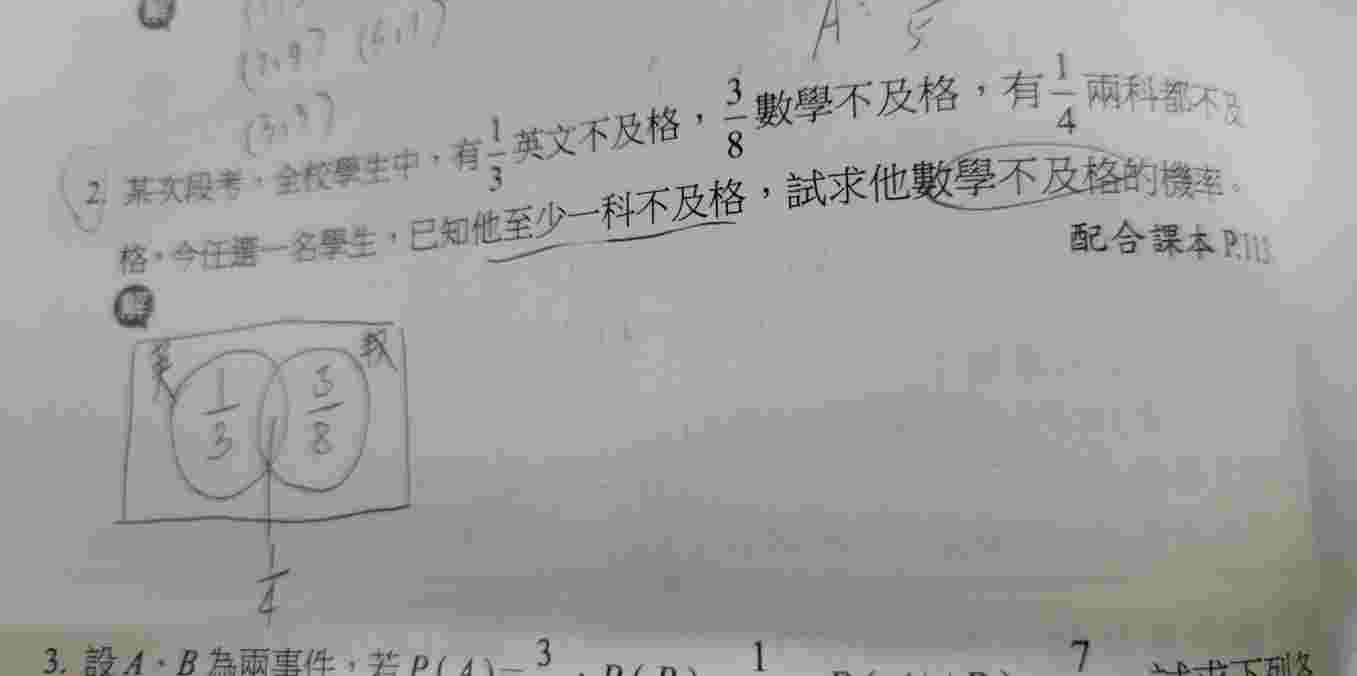 (7,9) (6,1)
A: 5
(3,3)
2. 某次段考,全校學生中,有1/3英文不及格,3/8數學不及格,有1/4兩科都不及
格。今任選一名學生,已知他至少一科不及格,試求他數學不及格的機率。
配合課本P.113
解
英 數
1/3 3/8
1/4
3. 設A、B為兩事件,若P(A)= 3 1 7 試求下列各